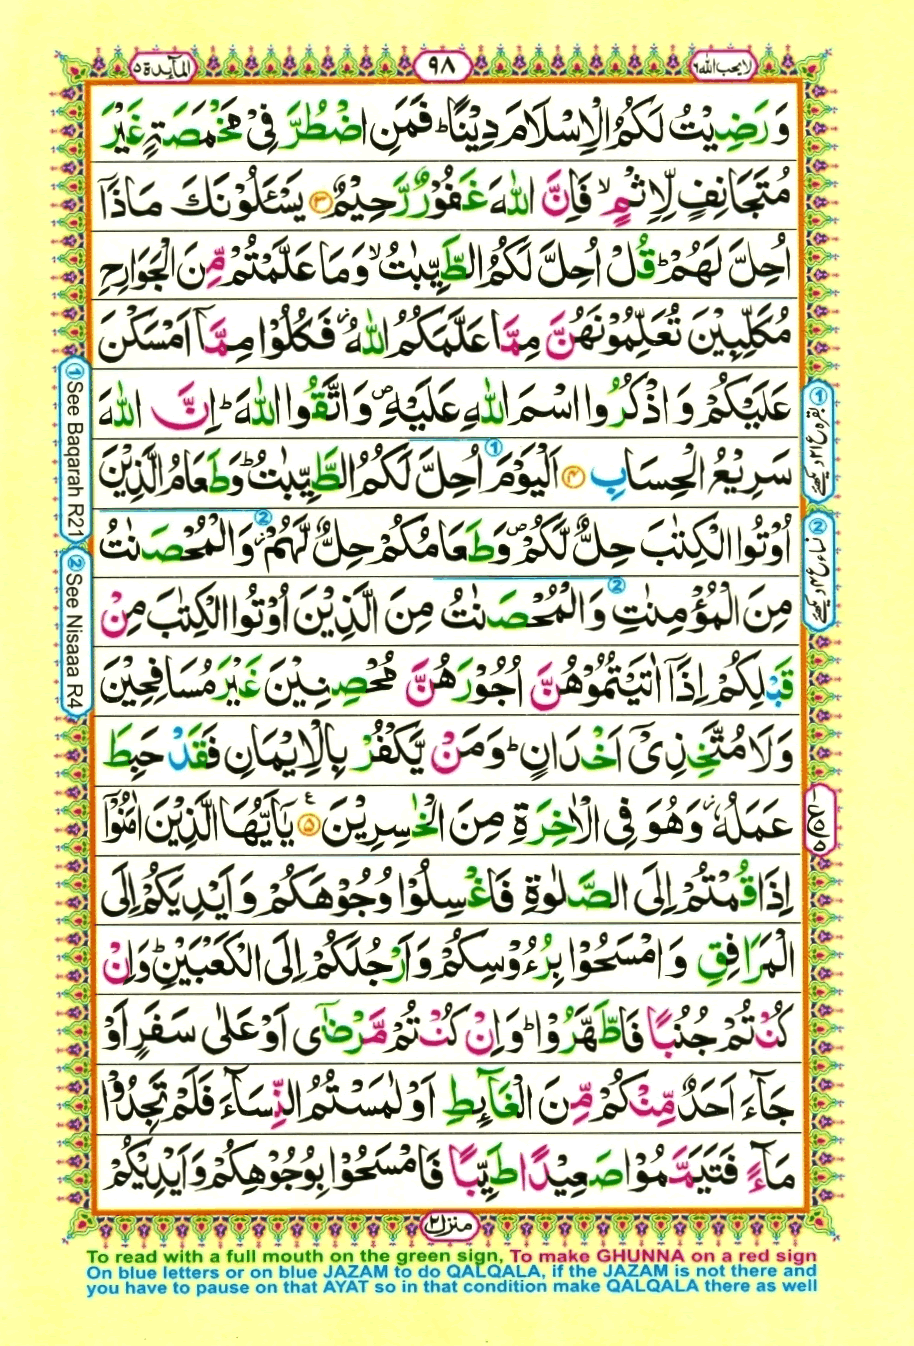 لا یحب اللہ ٦
٩٨
المآىِٕدة ٥
وَرَضِیْتُ لَكُمُ الْاِسْلَامَ دِیْنًا ؕ فَمَنِ اضْطُرَّ فِیْ مَخْمَصَةٍ غَیْرَ
مُتَجَانِفٍ لِّاِثْمٍ ۙ فَاِنَّ اللّٰهَ غَفُوْرٌ رَّحِیْمٌ ﴿٣﴾ یَسْـَٔلُوْنَكَ مَا ذَاۤ
اُحِلَّ لَهُمْ ؕ قُلْ اُحِلَّ لَكُمُ الطَّیِّبٰتُ ۙ وَمَا عَلَّمْتُمْ مِّنَ الْجَوَارِحِ
مُكَلِّبِیْنَ تُعَلِّمُوْنَهُنَّ مِمَّا عَلَّمَكُمُ اللّٰهُ ؗ فَكُلُوْا مِمَّاۤ اَمْسَكْنَ
عَلَیْكُمْ وَاذْكُرُوا اسْمَ اللّٰهِ عَلَیْهِ ۪ وَاتَّقُوا اللّٰهَ ؕ اِنَّ اللّٰهَ
سَرِیْعُ الْحِسَابِ ﴿٤﴾ اَلْیَوْمَ ① اُحِلَّ لَكُمُ الطَّیِّبٰتُ ؕ وَطَعَامُ الَّذِیْنَ
اُوْتُوا الْكِتٰبَ حِلٌّ لَّكُمْ ۪ وَطَعَامُكُمْ حِلٌّ لَّهُمْ ؗ ② وَالْمُحْصَنٰتُ
مِنَ الْمُؤْمِنٰتِ ② وَالْمُحْصَنٰتُ مِنَ الَّذِیْنَ اُوْتُوا الْكِتٰبَ مِنْ
قَبْلِكُمْ اِذَاۤ اٰتَیْتُمُوْهُنَّ اُجُوْرَهُنَّ مُحْصِنِیْنَ غَیْرَ مُسَافِحِیْنَ
وَلَا مُتَّخِذِیْۤ اَخْدَانٍ ؕ وَمَنْ یَّكْفُرْ بِالْاِیْمَانِ فَقَدْ حَبِطَ
عَمَلُهٗ ؗ وَهُوَ فِی الْاٰخِرَةِ مِنَ الْخٰسِرِیْنَ ﴿٥﴾ یٰۤاَیُّهَا الَّذِیْنَ اٰمَنُوْۤا
اِذَا قُمْتُمْ اِلَی الصَّلٰوةِ فَاغْسِلُوْا وُجُوْهَكُمْ وَاَیْدِیَكُمْ اِلَی
الْمَرَافِقِ وَامْسَحُوْا بِرُءُوْسِكُمْ وَاَرْجُلَكُمْ اِلَی الْكَعْبَیْنِ ؕ وَاِنْ
كُنْتُمْ جُنُبًا فَاطَّهَّرُوْا ؕ وَاِنْ كُنْتُمْ مَّرْضٰۤی اَوْ عَلٰی سَفَرٍ اَوْ
جَآءَ اَحَدٌ مِّنْكُمْ مِّنَ الْغَآىِٕطِ اَوْ لٰمَسْتُمُ النِّسَآءَ فَلَمْ تَجِدُوْا
مَآءً فَتَیَمَّمُوْا صَعِیْدًا طَیِّبًا فَامْسَحُوْا بِوُجُوْهِكُمْ وَاَیْدِیْكُمْ
① See Baqarah R21
② See Nisaaa R4
① بقرہ ع ٢١ دیکھئے
② نساء ع ٤ دیکھئے
ع ٥
منزل ٢
To read with a full mouth on the green sign, To make GHUNNA on a red sign
On blue letters or on blue JAZAM to do QALQALA, if the JAZAM is not there and
you have to pause on that AYAT so in that condition make QALQALA there as well